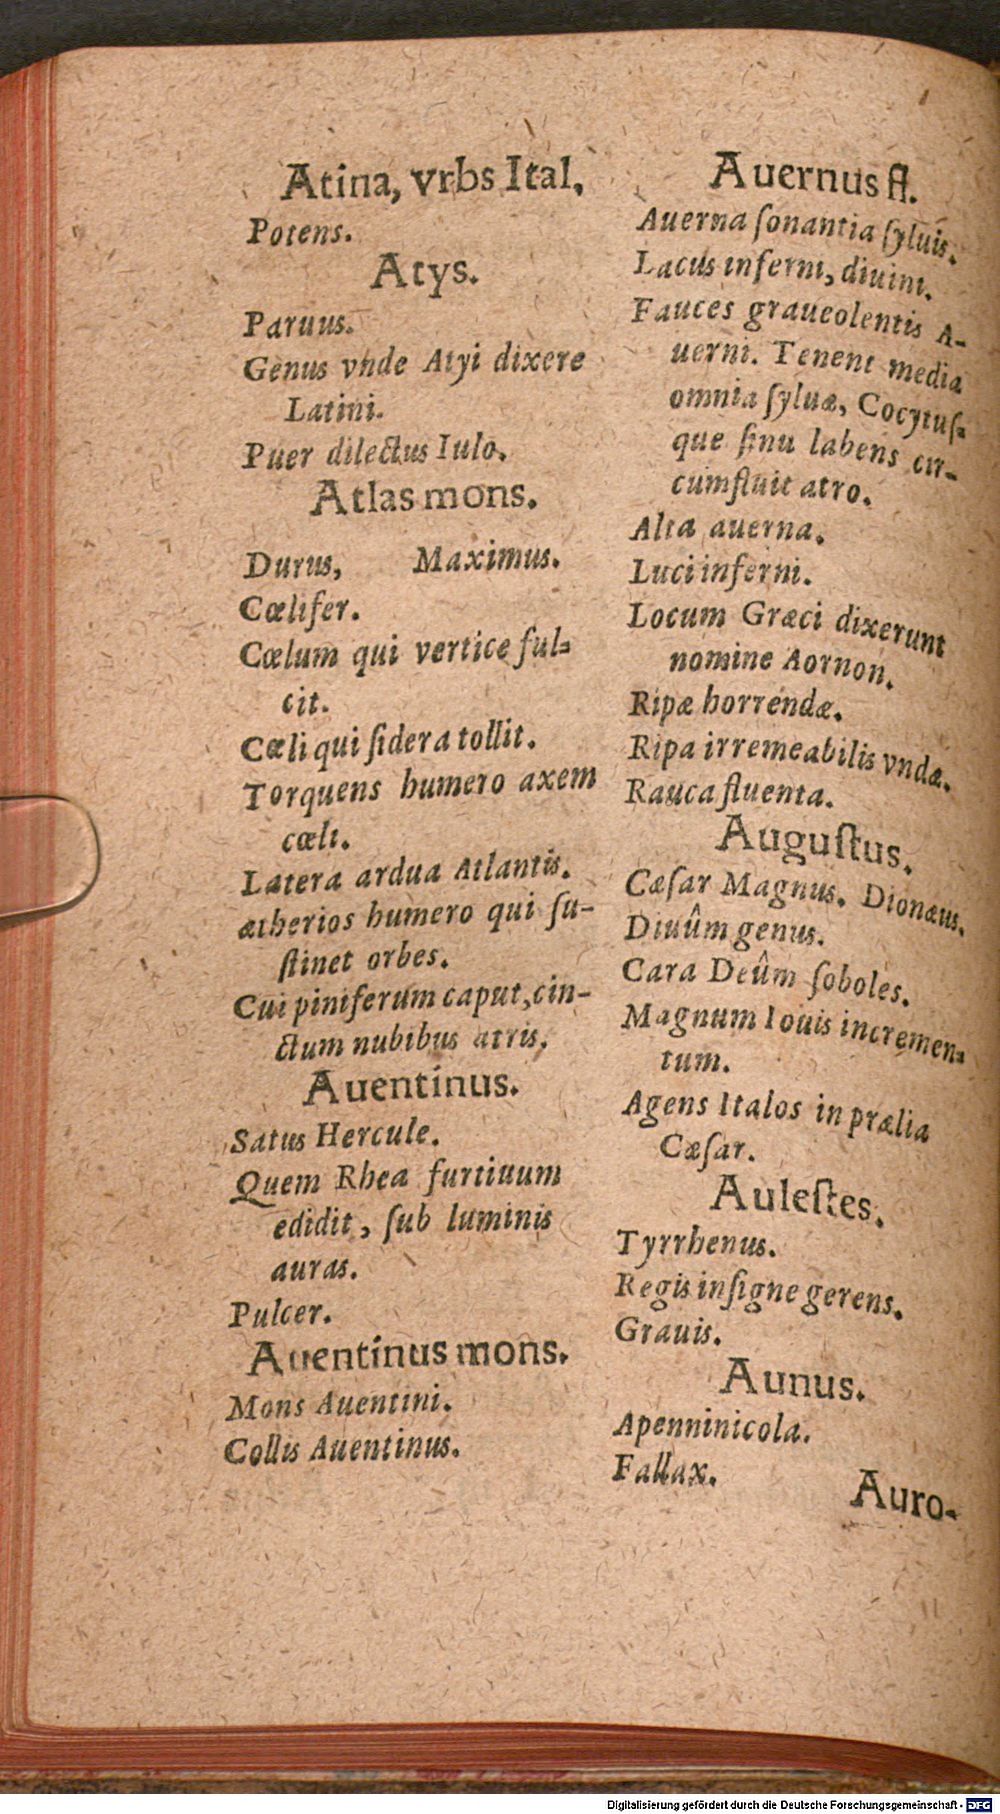 Atina, vrbs Ital.
Potens.
Atys.
Paruus.
Genus vnde Atyi dixere
Latini.
Puer dilectus Iulo.
Atlas mons.
Durus, Maximus.
Cœlifer.
Cœlum qui vertice ful-
cit.
Cœli qui ſidera tollit.
Torquens humero axem
cœli.
Latera ardua Atlantis.
ætherios humero qui ſu-
ſtinet orbes.
Cui piniferum caput, cin-
ctum nubibus atris.
Auentinus.
Satus Hercule.
Quem Rhea furtiuum
edidit, ſub luminis
auras.
Pulcer.
Auentinus mons.
Mons Auentini.
Collis Auentinus.
Auernus fl.
Auerna ſonantia ſyluis.
Lacus inferni, diuini.
Fauces graueolentis A-
uerni. Tenent media
omnia ſyluæ, Cocytuſ-
que ſinu labens cir-
cumfluit atro.
Alta auerna.
Luci inferni.
Locum Græci dixerunt
nomine Aornon.
Ripæ horrendæ.
Ripa irremeabilis vndæ.
Rauca fluenta.
Auguſtus.
Cæſar Magnus. Dionæus.
Diuûm genus.
Cara Deûm ſoboles.
Magnum Iouis incremen-
tum.
Agens Italos in prælia
Cæſar.
Auleſtes.
Tyrrhenus.
Regis inſigne gerens.
Grauis.
Aunus.
Apenninicola.
Fallax.
Auro-
Digitalisierung gefördert durch die Deutsche Forschungsgemeinschaft - DFG